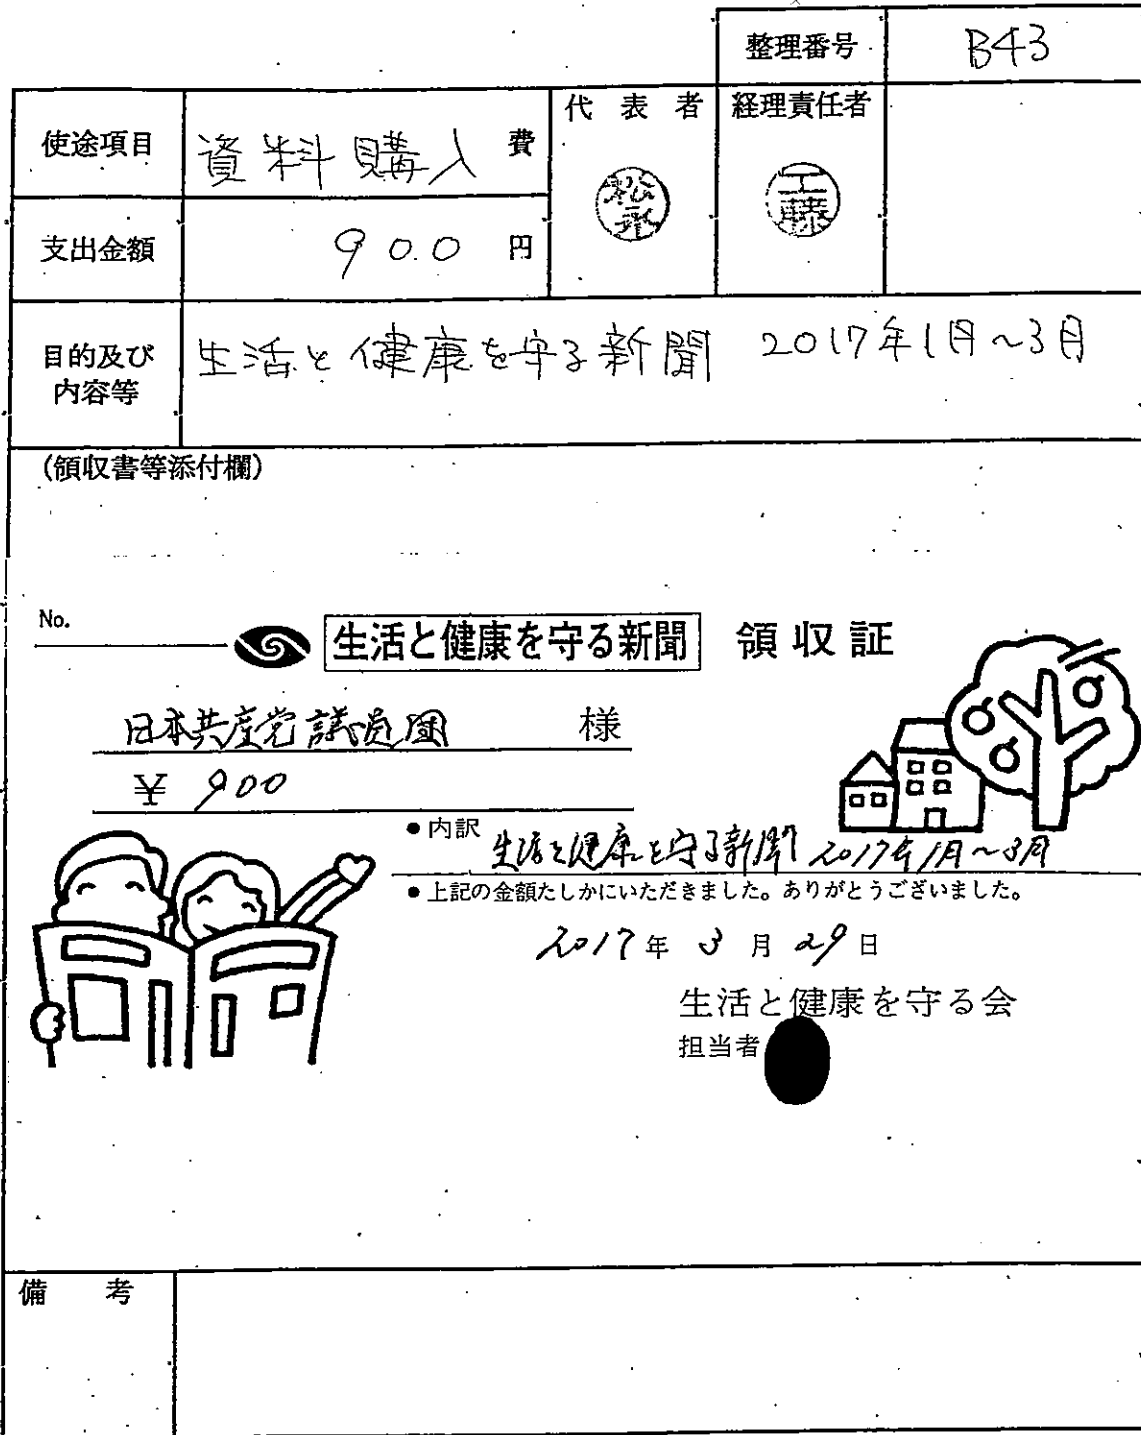 整理番号 B43
使途項目 資料購入 費
代表者 経理責任者
松永 工藤
支出金額 900 円
目的及び内容等 生活と健康を守る新聞 2017年1月~3月
(領収書等添付欄)
No.
生活と健康を守る新聞 領収証
日本共産党議員団 様
¥ 900
●内訳 生活と健康を守る新聞 2017年1月~3月
●上記の金額たしかにいただきました。ありがとうございました。
2017年 3月 29日
生活と健康を守る会
担当者
備考